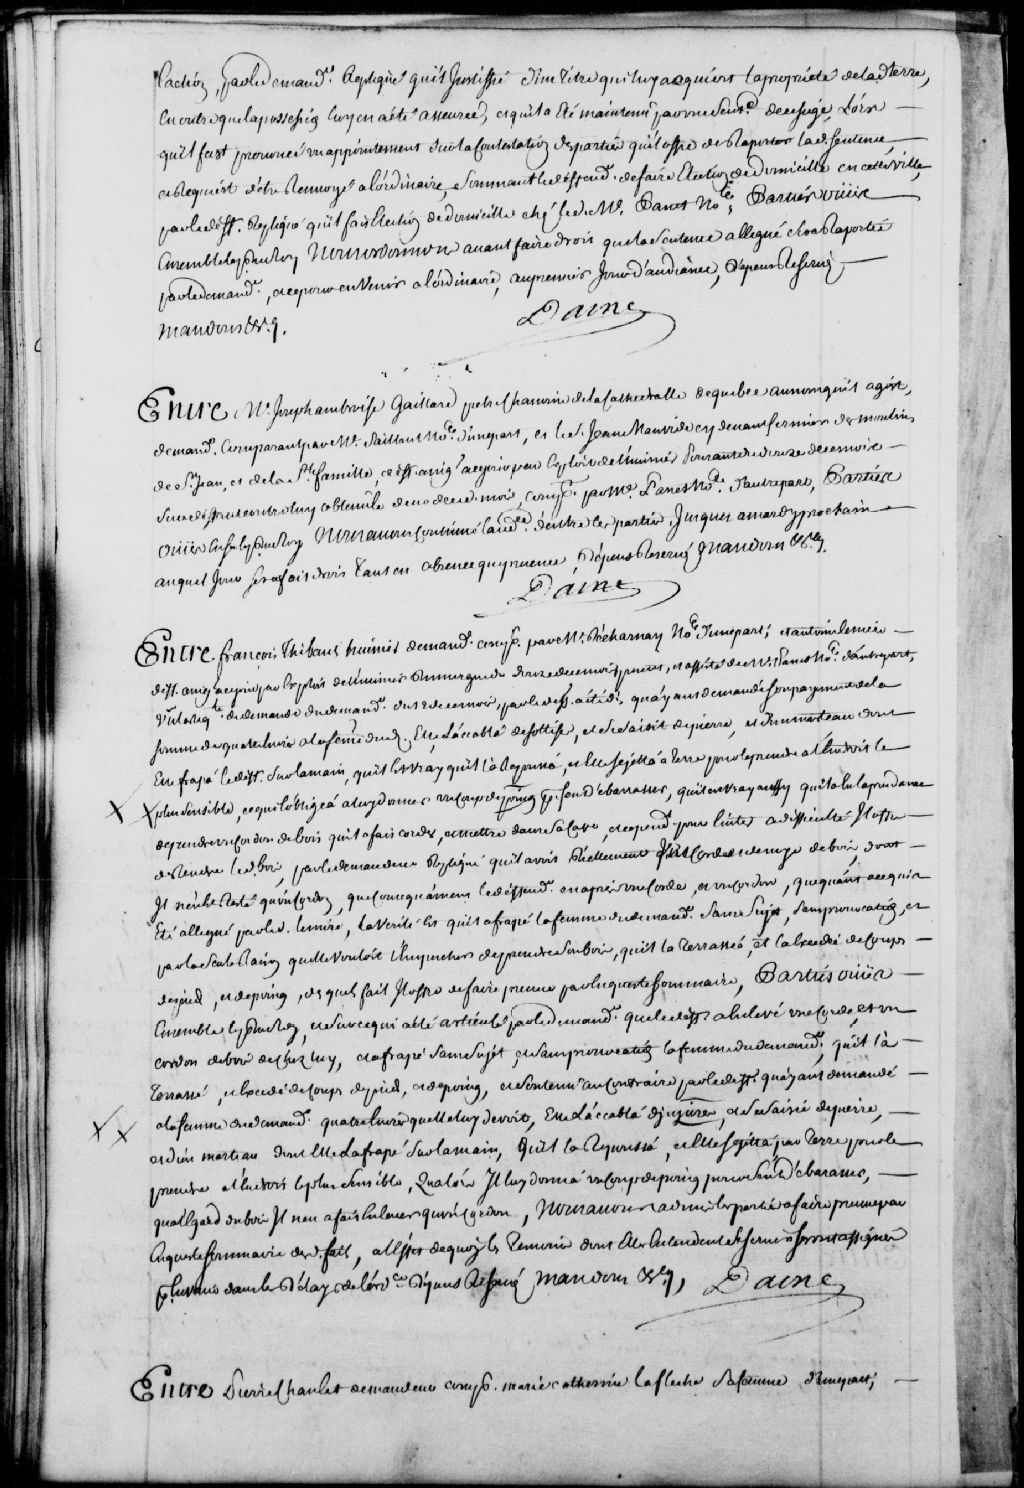 l'action, par le demand.r Repliqué qu'il Justiffie d'un titre qui luy acquiert la propriété de lad. terre,
En outre que la possession luy en a été asseurée, et qu'il a été maintenu par une Sent.ce de ce siege, Lors
qu'il fust prononcé un appointement sur la Contestation des parties qu'il offre de Raporter lad. sentence
et Requiert d'être Renvoyé a l'ordinaire, sommant le deffend.r de faire Election de Domicille en cette ville,
par le déff. Repliqué qu'il fait Election de domicille chés led. Me. Panet No.re, Parties ouïies
Ensemble le p.r du Roy Nous ordonnons avant faire droit que la sentence allegué sera Raportée
par le demand.r, et ce pour en Venir a l'ordinaire, au premier Jour d'audiance, dépens Reservés,
Mandons &c.
Daine
Entre Mr. Joseph ambroise Gaillard p.tre Chanoine de la Cathedralle de quebec au nom qu'il agist,
demand.r Comparant par Me. Saillant No.re d'une part, et le S. Jean Mauvide cy devant fermier des moulins
de St. Jean, et de la Ste. famille, déff. assig.é acejour par Exploit de l'huissier Courantin du onze de ce mois
Sur déffaut contre luy obtenu le de ce mois, comp.t par Me. Panet No.re d'autre part, Parties
ouïies Ensemble le p.r du Roy Nous avons Continué la aud.ce d'entre les parties Jusques a mardy prochain
auquel Jour sera fait droit tant en absence que presence, dépens Reservés Mandons &c.
Daine
Entre francois Thibaut huissier demand.r comp.t par Me. Décharnay No.re d'une part; et antoine lemire
déff. assig.é acejour par Exploit de l'huissier du onze de ce mois present, et assisté de Me. Panet No.re d'autre part,
Vu la Req.te de demande du demand.r du 2 de ce mois, par le déff. a été dit qu'ayant demandé son payement de la
somme de quatre livres a la femme dud. Elle l'a accablé de sottises, et se saisit de pierre, et d'un marteau dont
Elle frapé le déff. sur la main, qu'il est vray qu'il l'a Repoussé, et Elle se jetta a terre pour le prendre a l'Endroit le
plus sensible, ce qui l'obligea a luy donner un coup de poing p.r s'en d'ebarasser, qu'il est vray aussy qu'il a Eu la prudance
de prendre un cordon de bois qu'il a fait corder, et mettre dans sa Cave, et cepend.t pour Eviter a difficulté Il offre
de Rendre led. bois, par le demandeur Repliqué qu'il avoit Réellement fait Corde et demye de bois, dont
Il n'en Est Resté qu'un Cordon, que consequament le déffend.r en a pris une Corde, et un Cordon, que quant a ce qui a
Eté allegué par led. lemire, la verité Est qu'il a frapé la femme du demand.r sans sujet, sans provocation, et
par la seule Raison qu'elle Vouloit l'Empecher de prendre son bois, qu'il l'a terrassée, et l'a Excedée de Coups
de pied, et de poing, des quels fait Il offre de faire preuve par Enqueste sommaire, Parties ouïies
Ensemble le p.r du Roy, et sur ce qui a été articulé par le demand.r que le déff. a Enlevé une Corde, et un
cordon de bois de chez luy, et a frapé sans sujet, et sans provocation la femme du demand.r, qu'il l'a
terrassé, et Excedé de Coups de pied, et de poing, et soutenu au Contraire par le déff. qu'ayant demandé
a la femme du demand.r quatre livres qu'elle luy devoit, Elle l'a accablé d'injures, et se saisie de pierre,
et d'un marteau dont Elle l'a frapé sur la main, Qu'il l'a Repoussé, et Elle se jetta par terre pour le
prendre a l'Endroit le plus sensible, Qu'alors Il luy donna un coup de poing pour s'en d'ebarasser,
qu'a l'Egard du bois Il n'en a fait Enlever qu'un Cordon, Nous avons admis les parties a faire preuve par
Enqueste sommaire desd. faits, a l'Effet de quoy les temoins dont Elles Entendent se servir seront assignés
p.r Envenir dans les Délays de l'ord.ce dépens Reservés Mandons &c,
Daine
Entre Pierre Chaulet demandeur comp.t marie catherine lafleche sa femme d'une part;